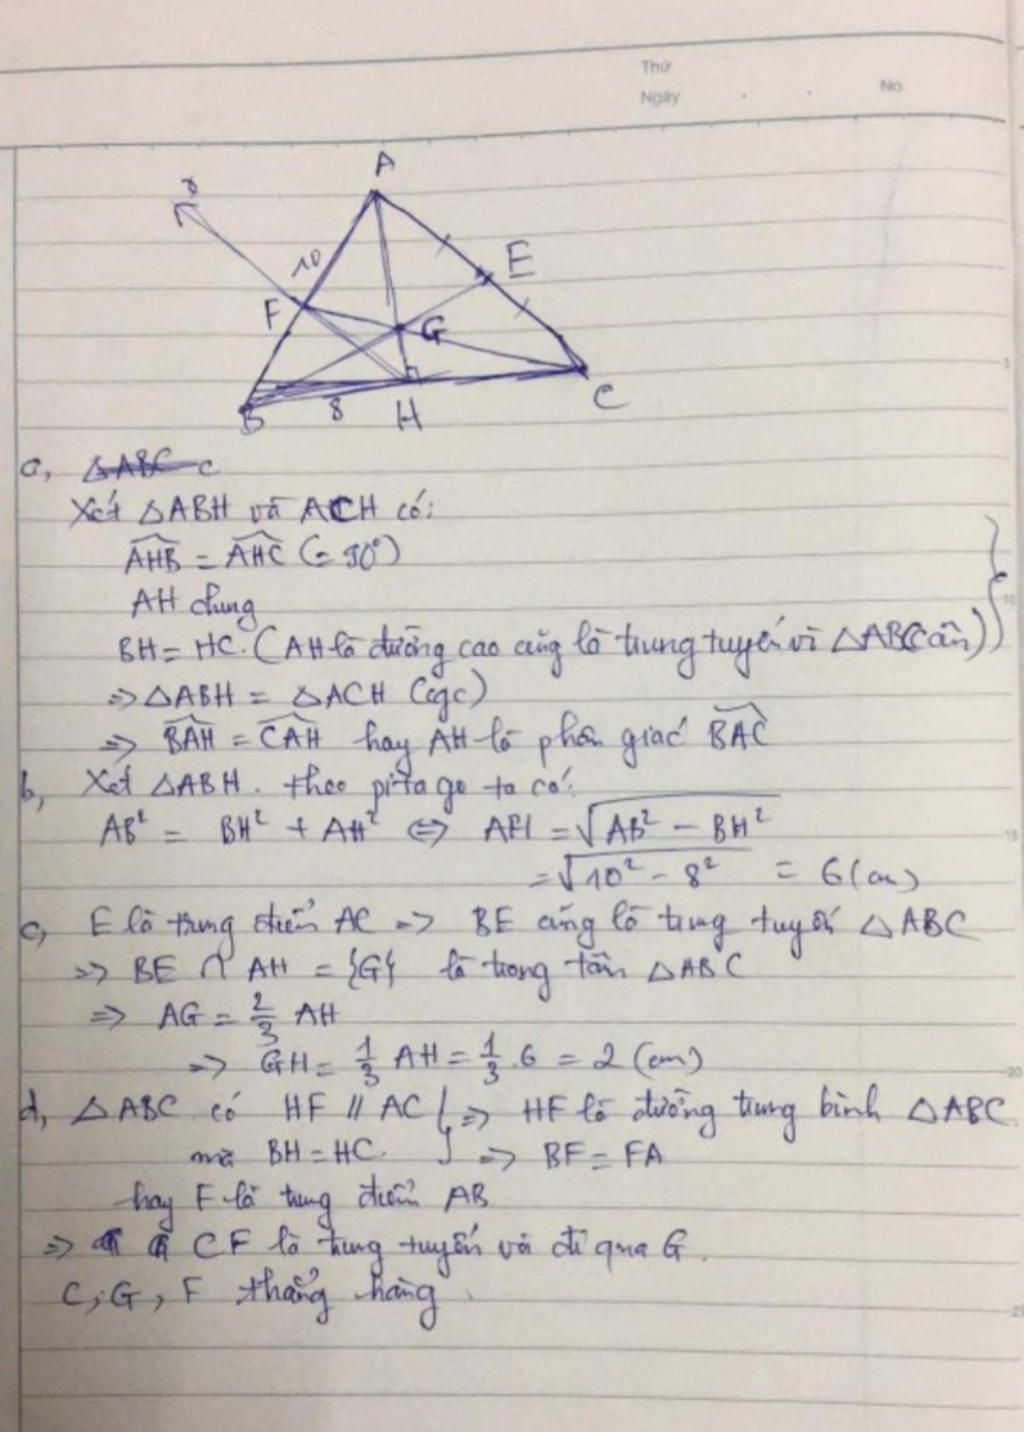 Thứ
Ngày . . No.
A
x
10
E
F
G
B 8 H C
5
a, △ABC c
Xét △ABH và ACH có:
AHB = AHC (= 90°)
AH chung
10
BH = HC. (AH là đường cao cũng là trung tuyến vì △ABC cân)
=> △ABH = △ACH (cgc)
=> BAH = CAH hay AH là phân giác BAC
b, Xét △ABH. theo pitago ta có:
AB² = BH² + AH² <=> AH = √AB² - BH²
15
= √10² - 8² = 6 (cm)
c, E là trung điểm AC => BE cũng là trung tuyến △ABC
=> BE ∩ AH = {G} là trọng tâm △ABC
=> AG = 2/3 AH
=> GH = 1/3 AH = 1/3 . 6 = 2 (cm)
20
d, △ABC có HF // AC } => HF là đường trung bình △ABC
mà BH = HC } => BF = FA
hay F là trung điểm AB
=> CF là trung tuyến và đi qua G.
C, G, F thẳng hàng.
25